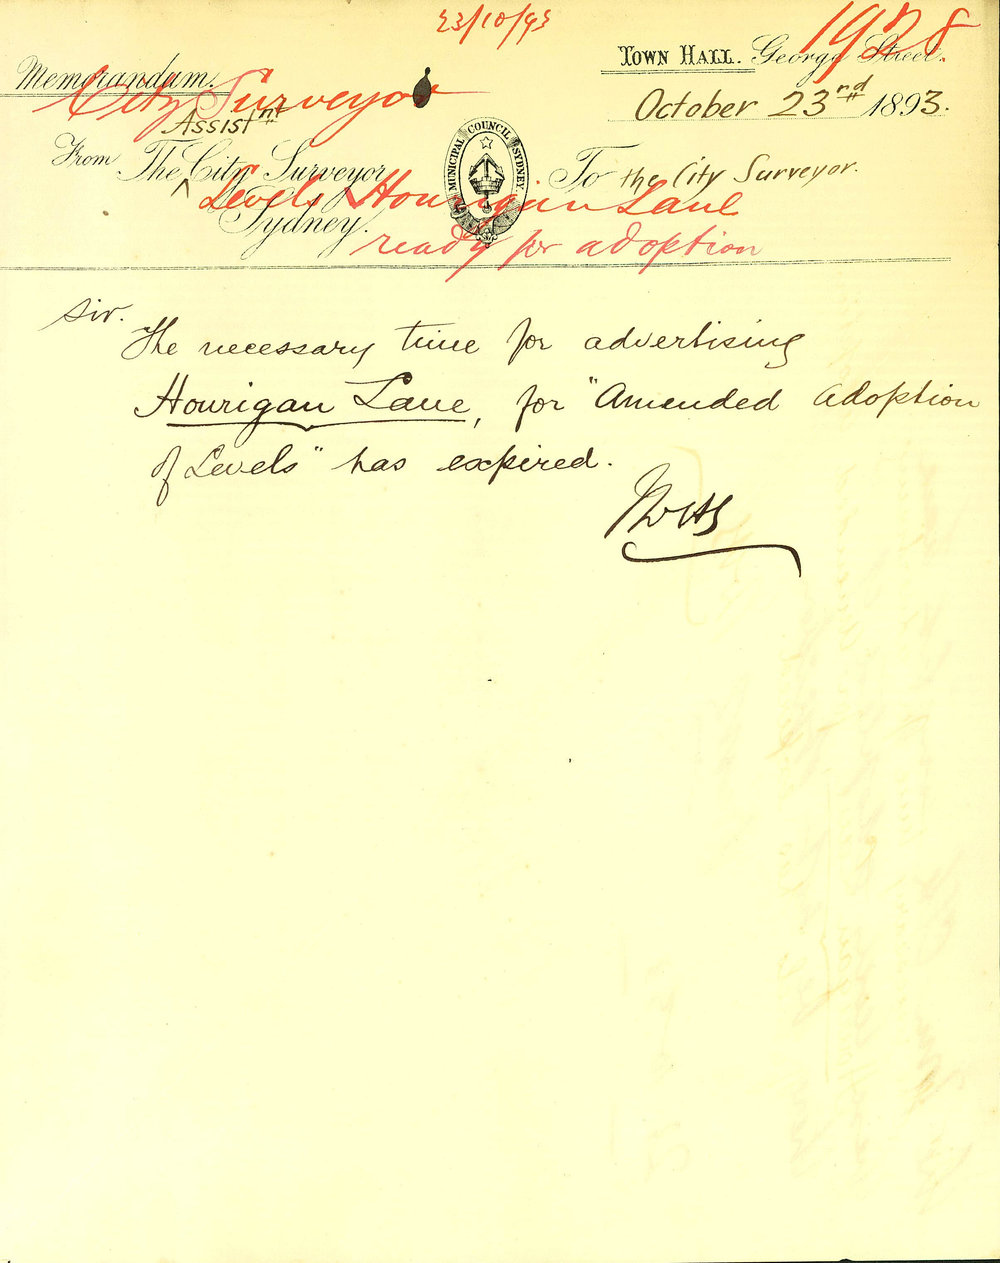 23/10/93
1928
Town Hall. George Street.
Memorandum.
City Surveyor
October 23rd 1893.
Assistnt
From The City Surveyor
MUNICIPAL COUNCIL SYDNEY
To the City Surveyor.
Levels Hourigan Lane
Sydney.
ready for adoption
Sir.
The necessary time for advertising
Hourigan Lane, for "Amended Adoption
of Levels" has expired.